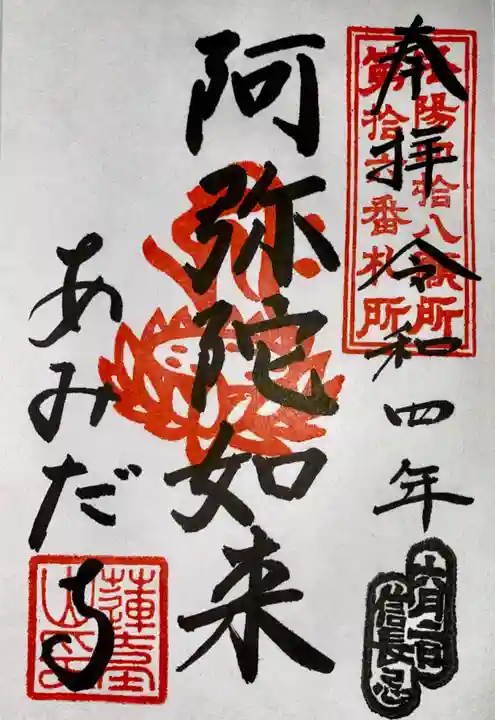 奉拝 令和四年
洛陽四拾八願所
第拾六番札所
六月二日
信長忌
阿弥陀如来
あみだ寺
蓮台山